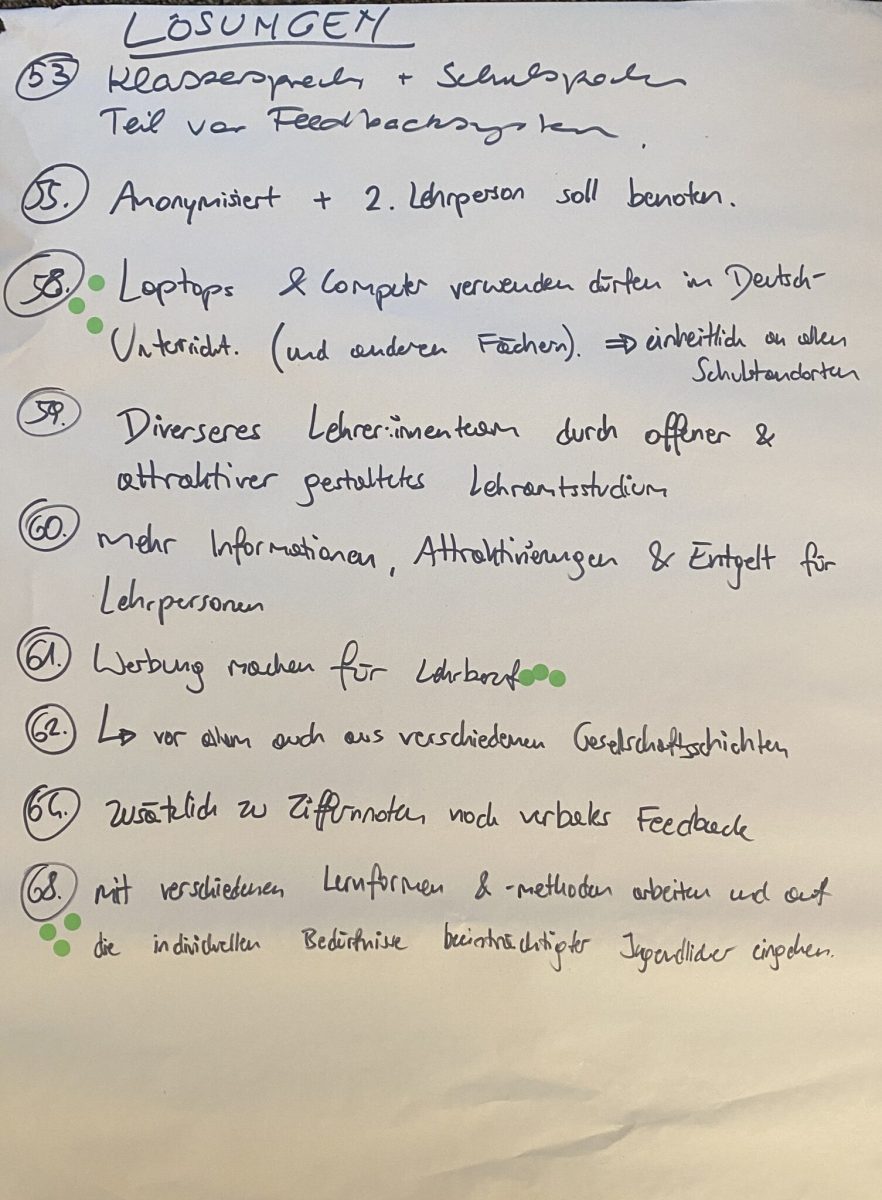 LÖSUNGEN
53 Klassensprecher + Schulsprecher
Teil von Feedbacksystem.
55. Anonymisiert + 2. Lehrperson soll benoten.
58. Laptops & Computer verwenden dürfen im Deutsch-
Unterricht. (und anderen Fächern). ⇒ einheitlich an allen
Schulstandorten
59. Diverseres Lehrer:innenteam durch offener &
attraktiver gestaltetes Lehramtsstudium
60. mehr Informationen, Attraktivierungen & Entgelt für
Lehrpersonen
61. Werbung machen für Lehrberuf
62. ↳ vor allem auch aus verschiedenen Gesellschaftsschichten
64. Zusätzlich zu Ziffernnoten noch verbales Feedback
68. mit verschiedenen Lernformen & -methoden arbeiten und auf
die individuellen Bedürfnisse beeinträchtigter Jugendlicher eingehen.